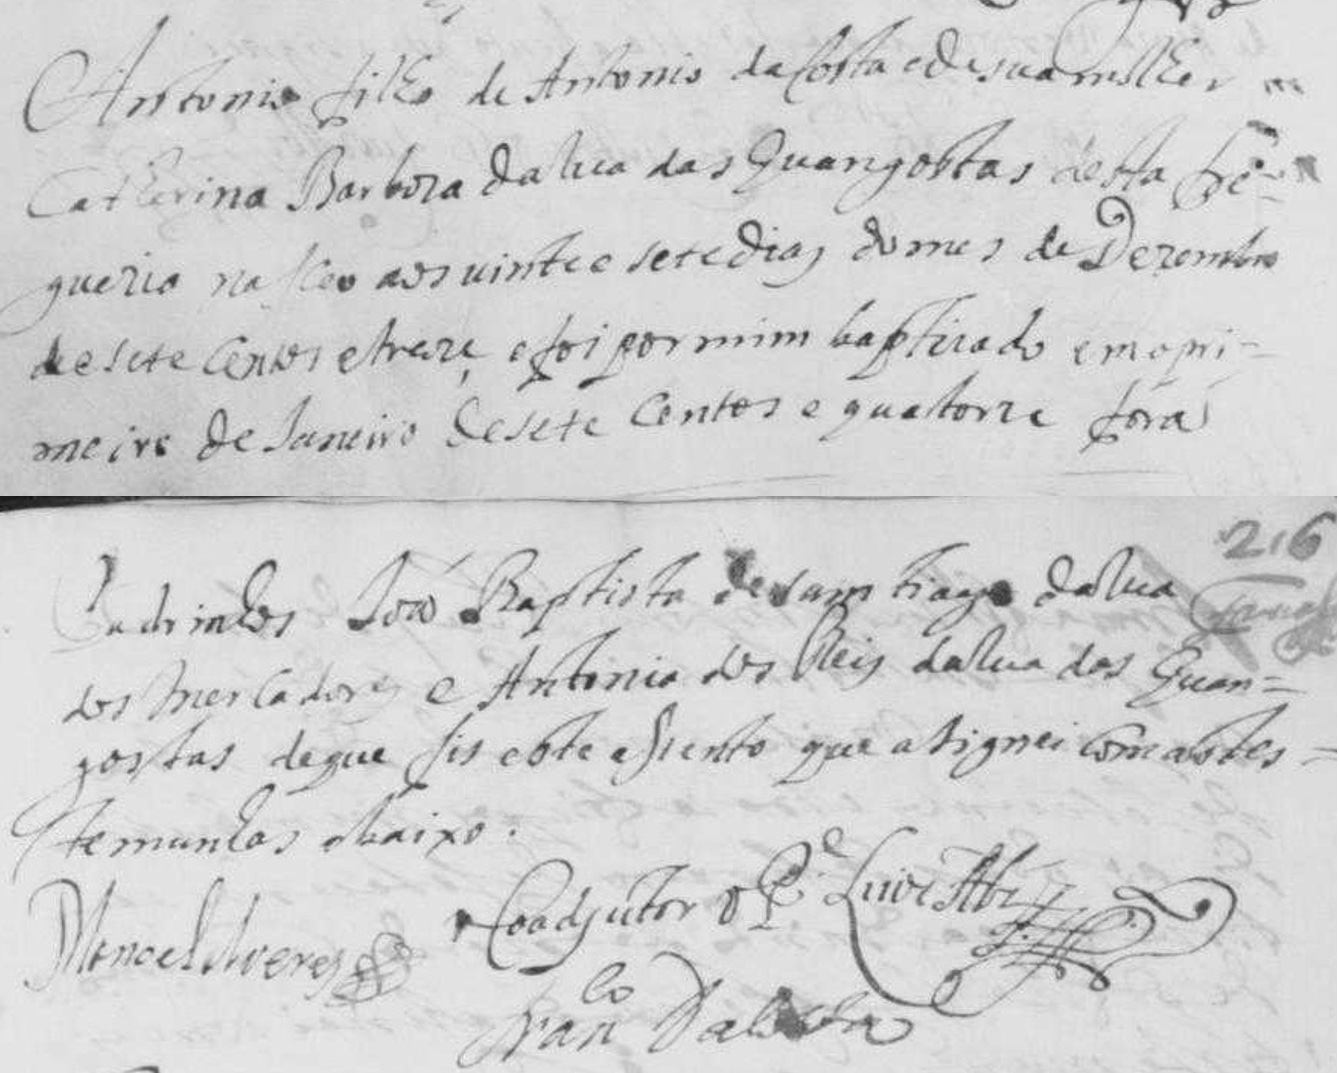 Antonio filho de Antonio da Costa e de sua molher
Catherina Barboza da Rua das Quangostas desta fre-
guezia nasceo aos vinte e sete dias do mes de Dezembro
de sete Centos e treze, e foi por mim baptizado em o pri-
meiro de Janeiro de sete Centos e quatorze forã
216
Padrinhos Joaõ Baptista de sam tiago da Rua
dos Mercadores e Antonia dos Reis da Rua das Quan-
gostas de que fis este assento que asignei com as tes-
temunhas abaixo.
Manoel Alveres Coadjutor o P.e Luis Alz
Fran co Da Costa